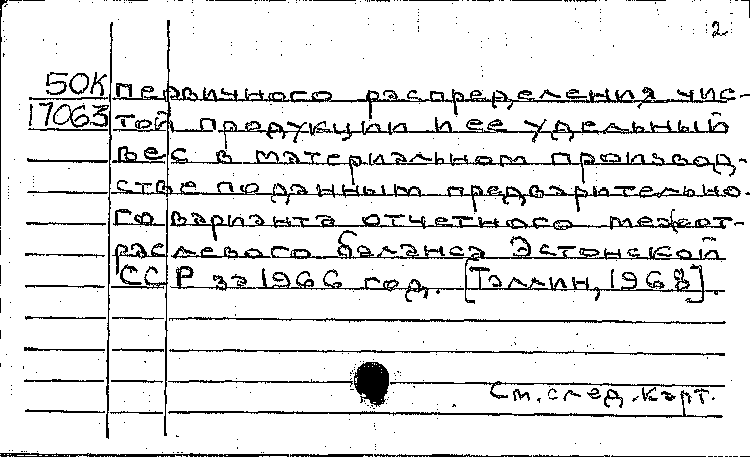 2
50К первичного распределения чис-
17063 той продукции и ее удельный
вес в материальном производ-
стве по данным предварительно-
го варианта отчетного межот-
раслевого баланса Эстонской
ССР за 1966 год. [Таллин, 1968].
См. след. карт.